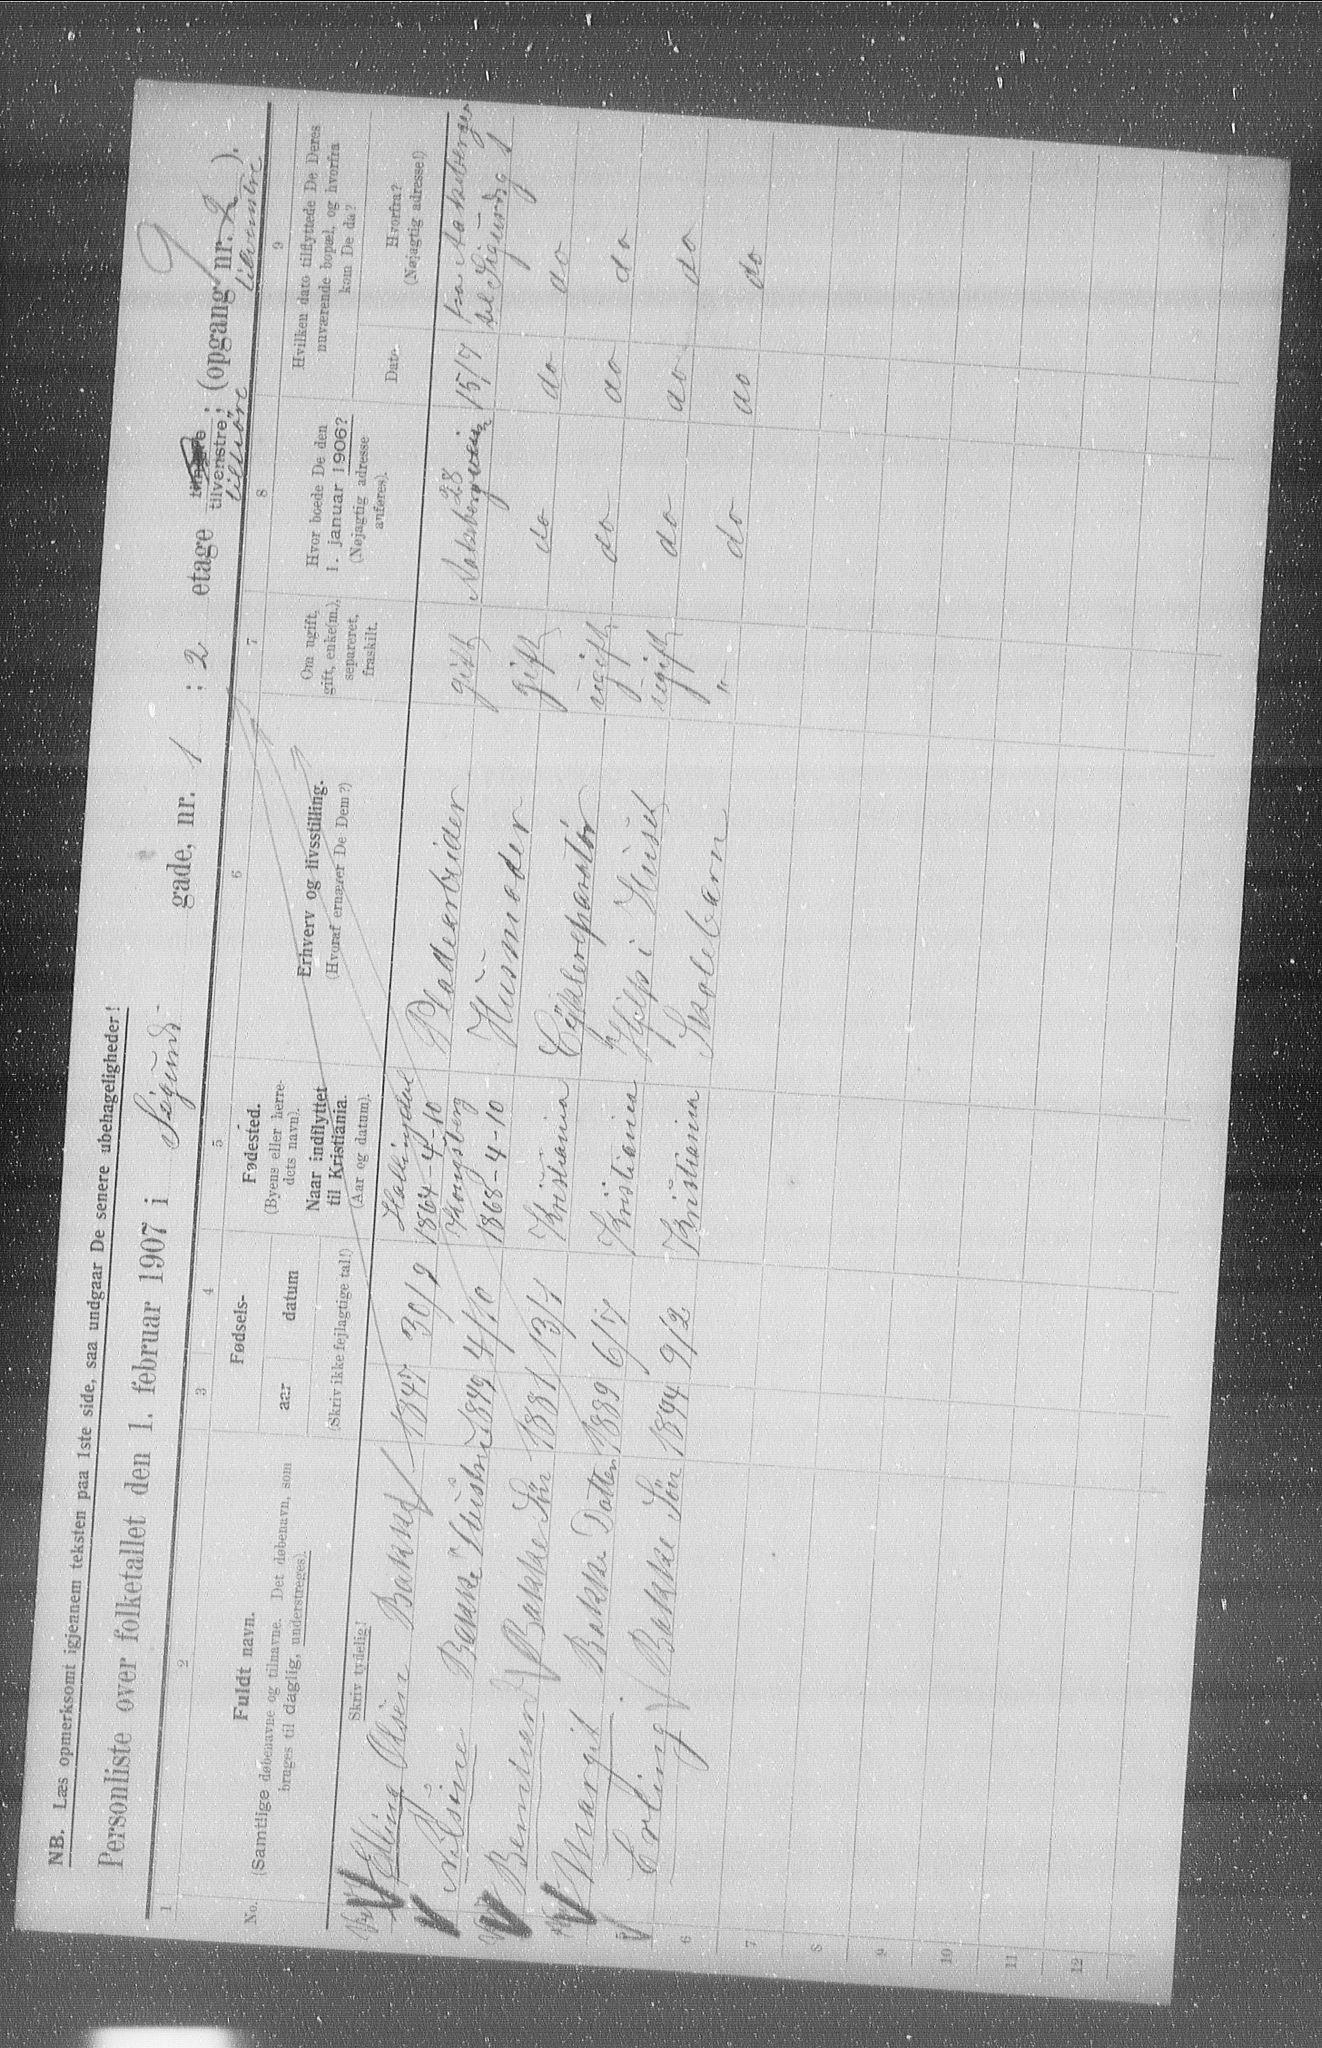 NB. Læs opmerksomt igjennem teksten paa 1ste side, saa undgaar De senere ubehageligheder!
Personliste over folketallet den 1. februar 1907 i Sigurds- gade, nr. 1 ; 2 etage tilvenstre; (opgang nr. 2).
tilhøire tilvenstre
1 2 3 4 5 6 7 8 9
No.
Fuldt navn.
(Samtlige døbenavne og tilnavne. Det døbenavn, som
bruges til daglig, understreges).
Skriv tydelig!
Fødsels-
aar datum
(Skriv ikke fejlagtige tal!)
Fødested.
(Byens eller herre-
dets navn).
Naar indflyttet
til Kristiania.
(Aar og datum).
Erhverv og livsstilling.
(Hvoraf ernærer De Dem?)
Om ugift,
gift, enke(m.),
separeret,
fraskilt.
Hvor boede De den
1. januar 1906?
(Nøjagtig adresse
anføres).
Hvilken dato tilflyttede De Deres
nuværende bopæl, og hvorfra
kom De da?
Date.
Hvorfra?
(Nøjagtig adresse!)
Elling Olsen Bakke 1847 30/9 Hallingdal 1864-4-10 Pladearbeider gift 28 15/7 fra til Sigurdsg 1
Nilsine Bakke Hustru 1849 4/10 Kongsberg 1868-4-10 Husmoder gift do do do
Berntsen Bakke Sön 1881 13/7 Kristiania Cyklereparatör ugift do do do
Margit Bakke Datter 1889 6/7 Kristiania Hjelp i Huset ugift do do do
5 Erling Bakke Sön 1894 9/2 Kristiania Skolebarn " do do do
6
7
8
9
10
11
12